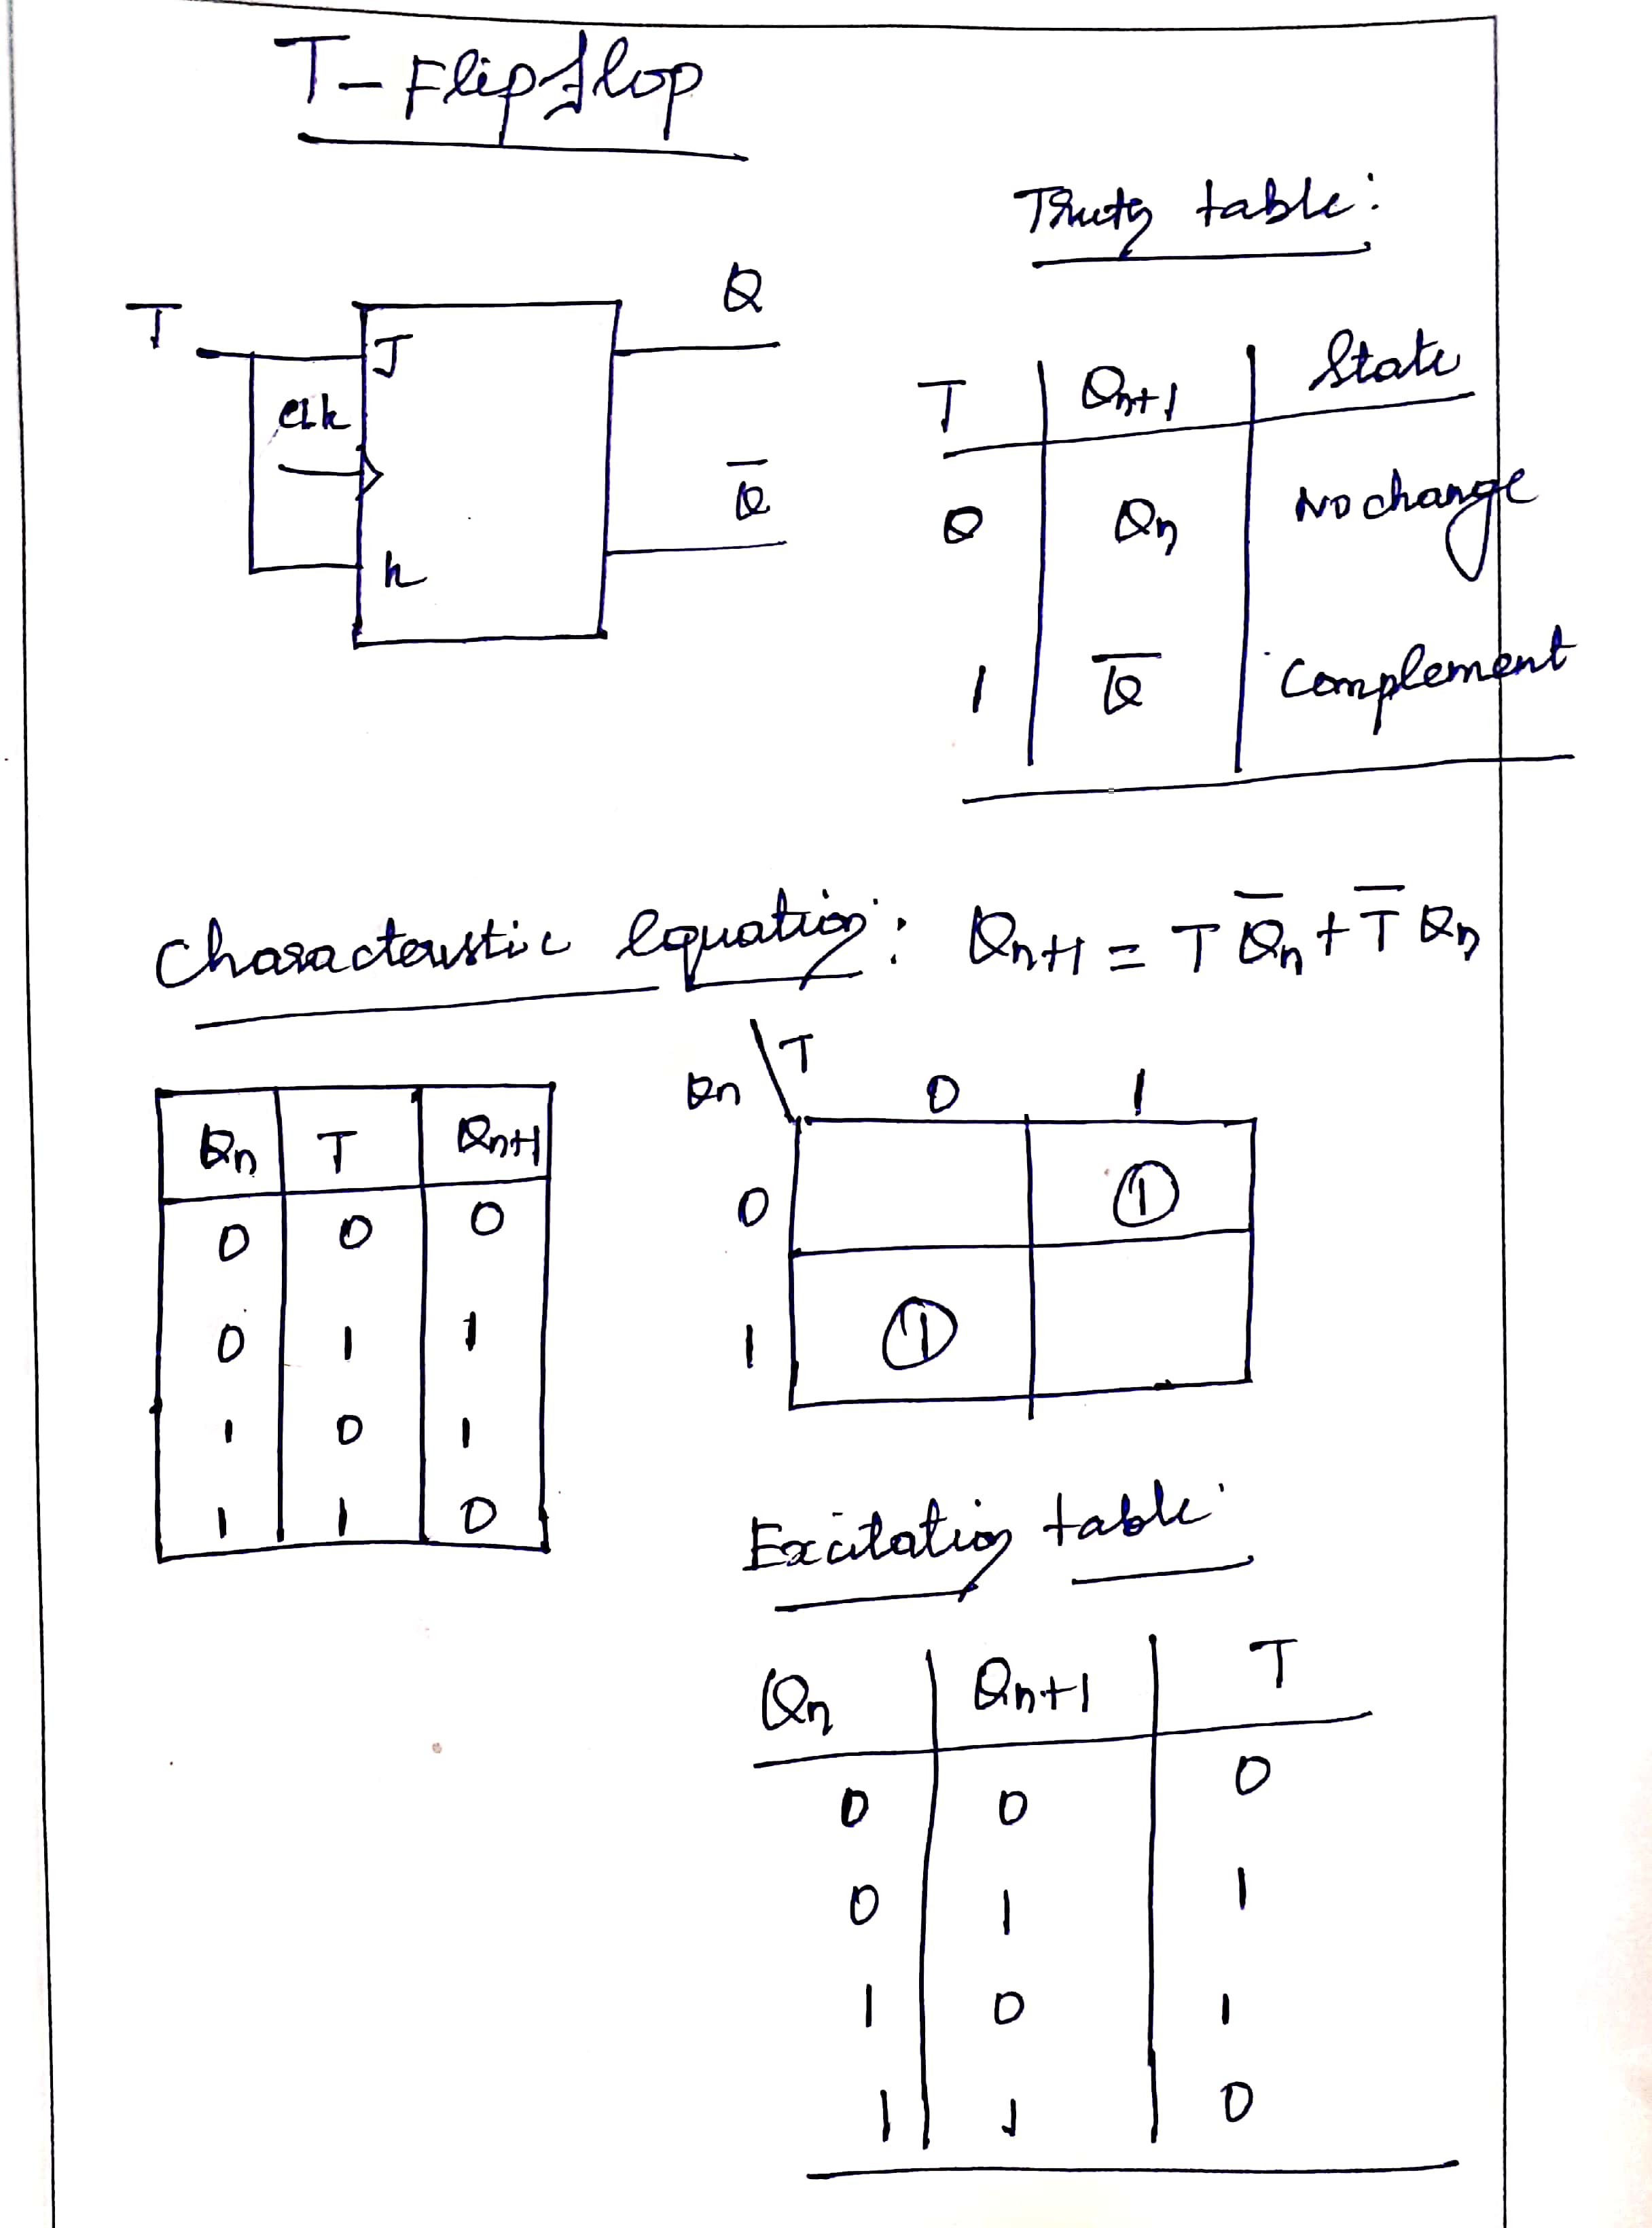 T-Flipflop
Truth table:
T Q
J
Clk
Q̅
k
T Qn+1 State
0 Qn No change
1 Q̅ Complement
Characteristic equation: Qn+1 = T Q̅n + T̅ Qn
Qn T Qn+1
0 0 0
0 1 1
1 0 1
1 1 0
Qn T
0 1
0 1
1 1
Excitation table:
Qn Qn+1 T
0 0 0
0 1 1
1 0 1
1 1 0